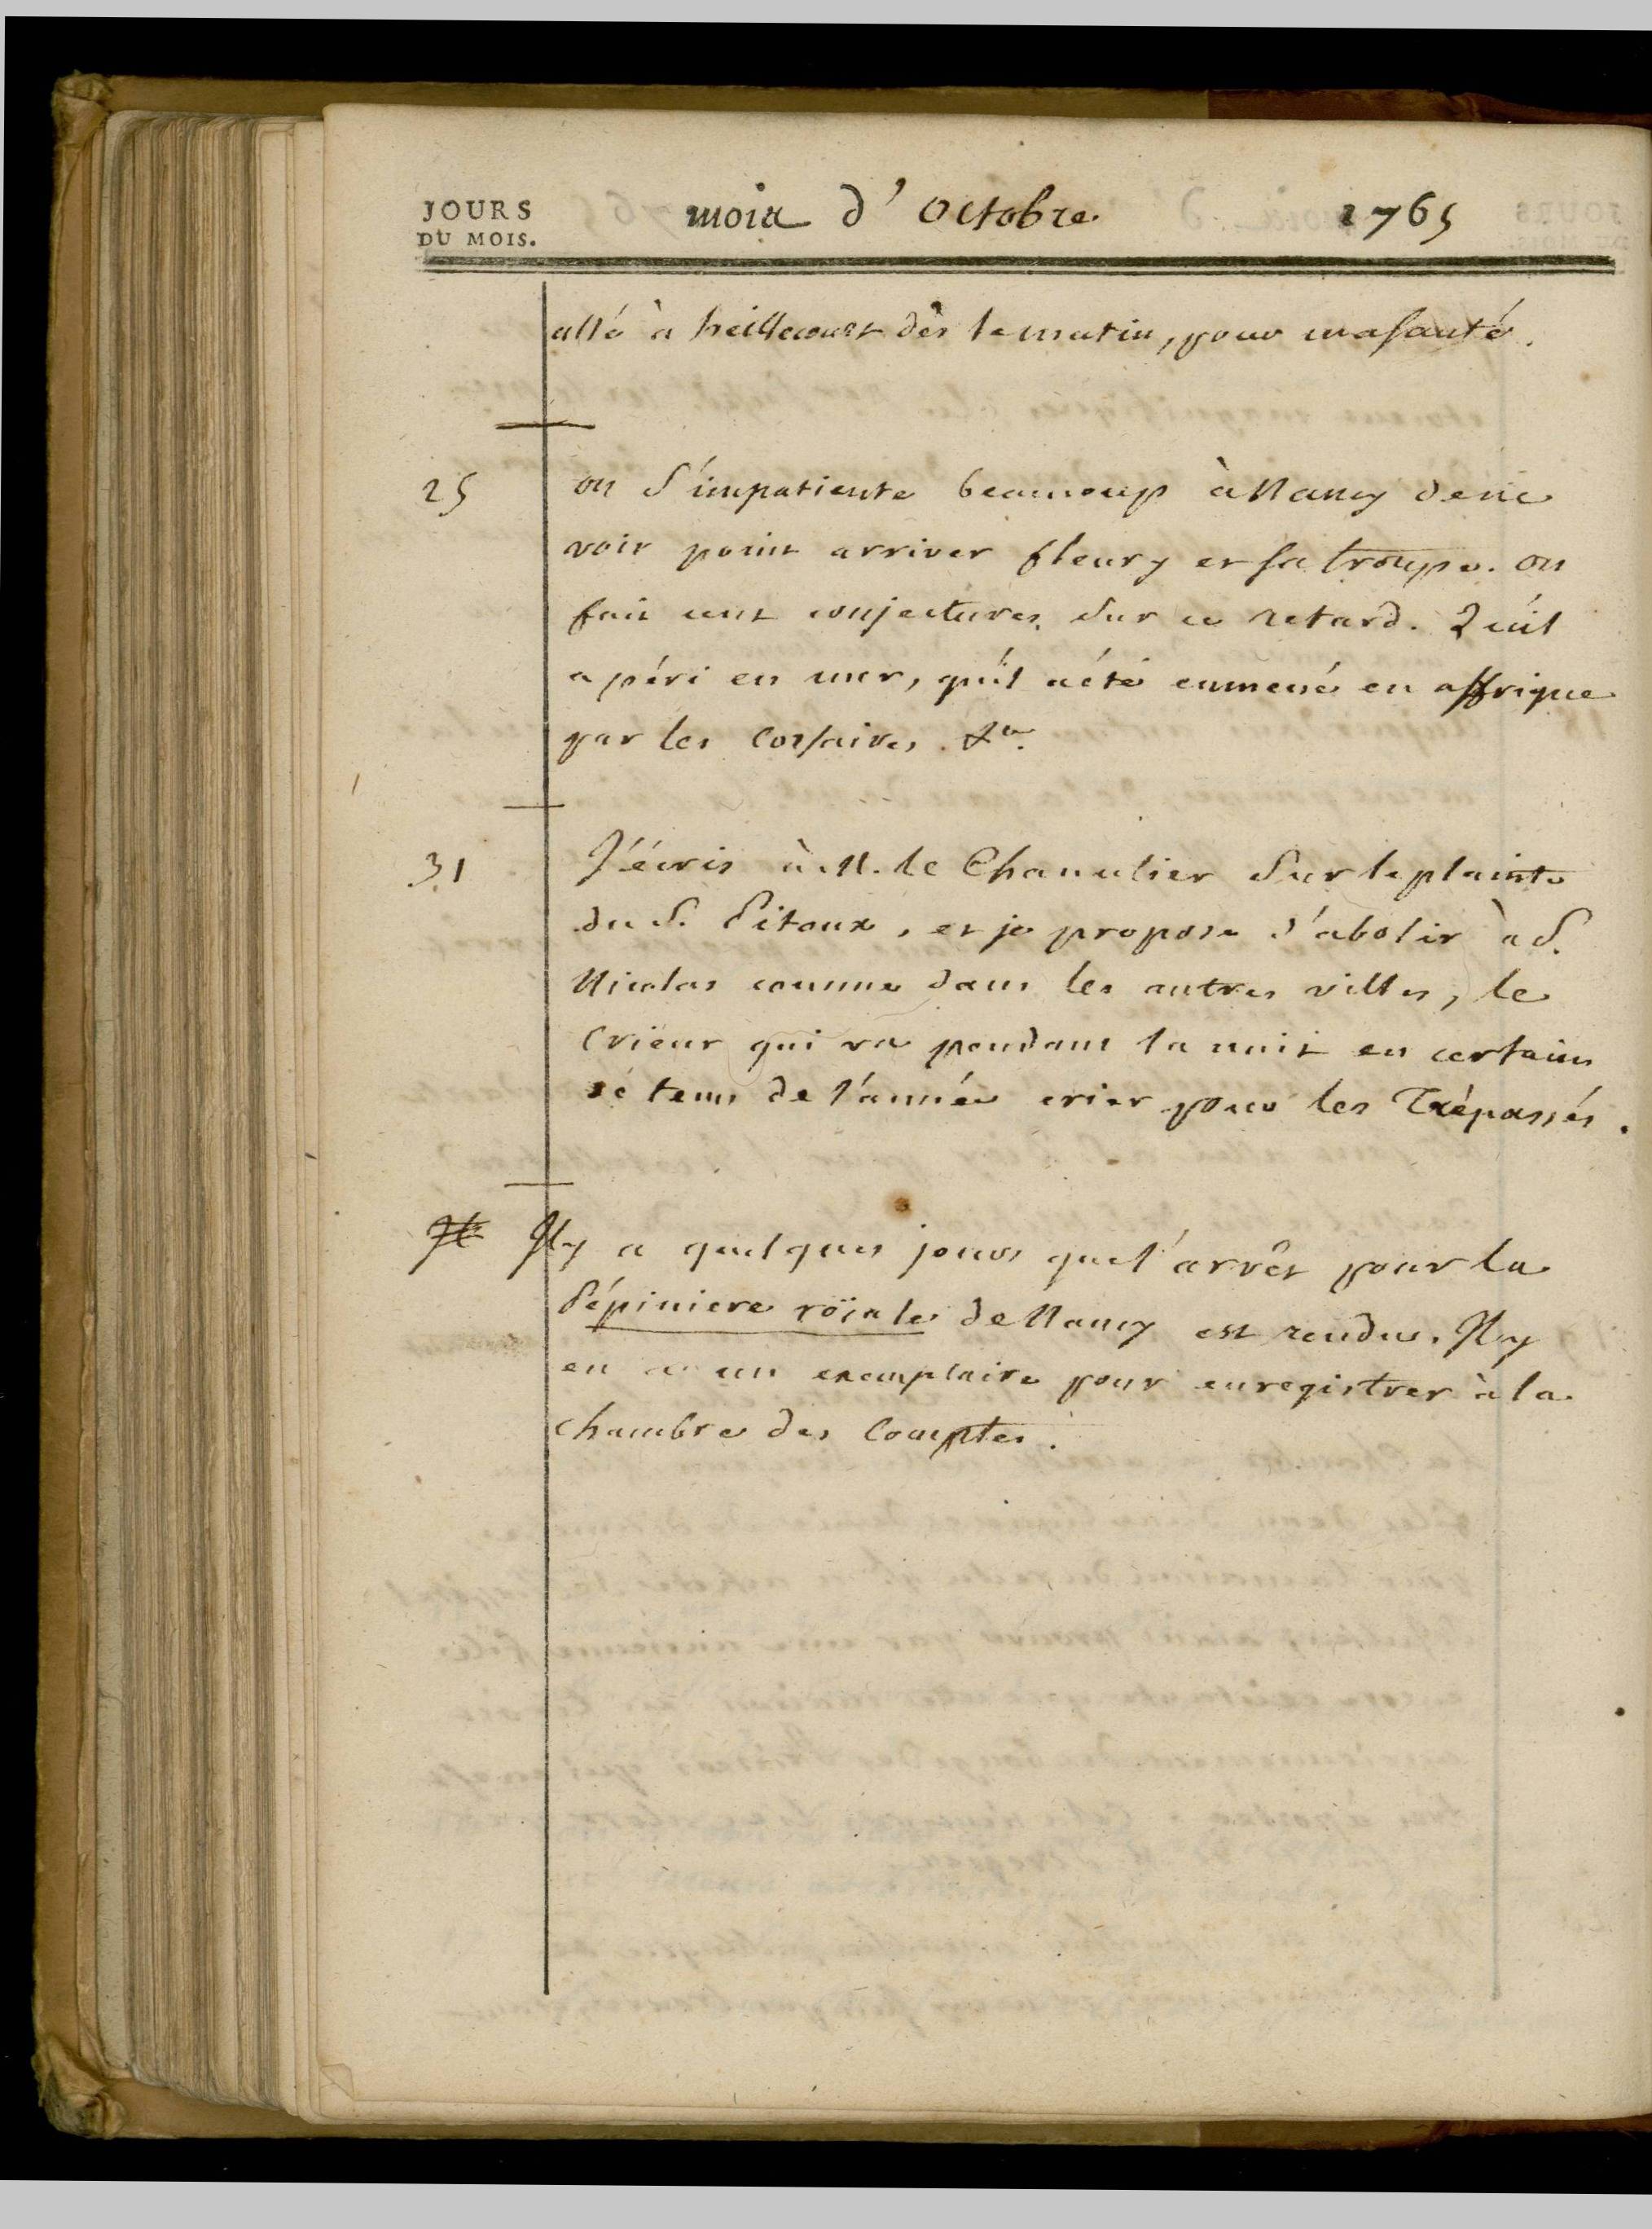 JOURS
DU MOIS.
mois d'octobre 1765
allé à heillecourt dès le matin, pour ma santé.
25 on s'impatiente beaucoup à Nancy de ne
voir point arriver fleury et sa troupe. on
fait cent conjectures sur ce retard. Qu'il
a péri en mer, qu'il a été emmené en affrique
par les corsaires &c.
31 J'écris à M. le Chancelier sur la plainte
du S. Pitoux, et je propose d'abolir à S.
Nicolas comme dans les autres villes, le
crieur qui va pendant la nuit en certains
tems de l'année crier pour les Trépassés.
Il Il y a quelques jours que l'arrêt pour la
Pépiniere roïale de Nancy est rendu. Il y
en a un exemplaire pour enregistrer à la
chambre des Comptes.